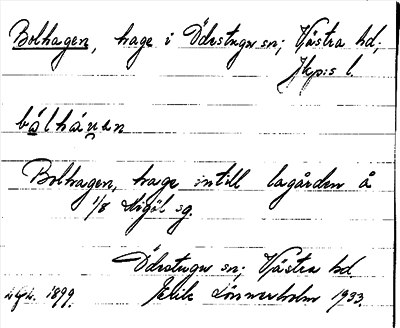 Bolhagen, hage i Ödestugu sn; Västra hd;
Jkp:s l.
bålháụen
Bolhagen, hage intill lagården å
1/8 Stigöl sg.
Ödestugu sn; Västra hd
1899. Elik Lönnerholm 1933.